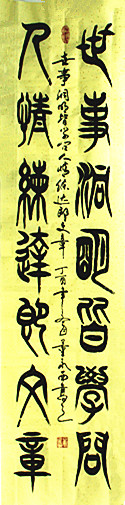 世事洞明皆學問
世事洞明皆学问人情练达即文章丁酉年
人情練達即文章